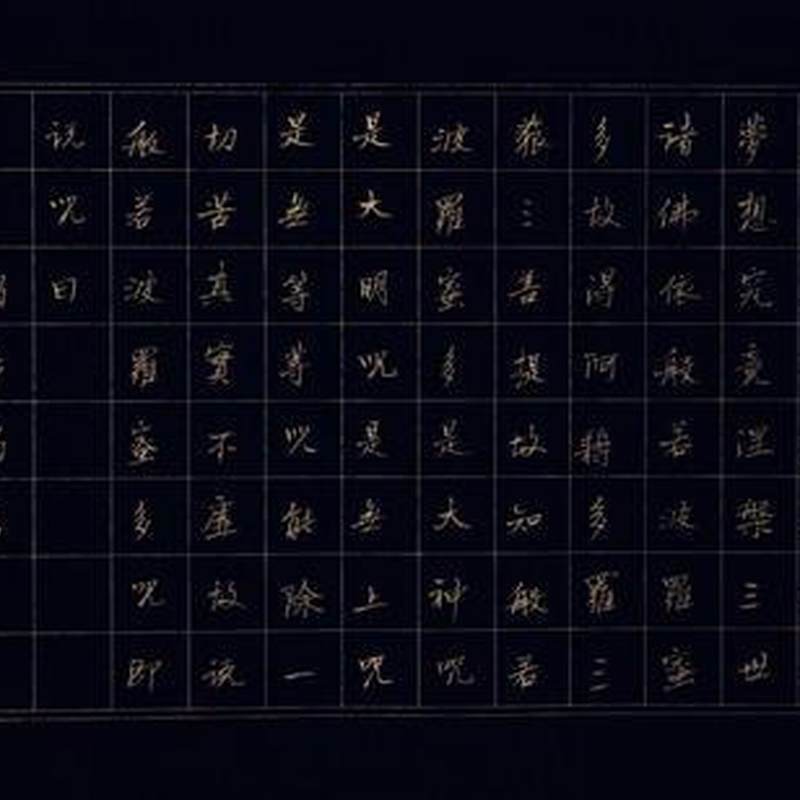 夢想究竟涅槃三世
諸佛依般若波羅蜜
多故得阿耨多羅三
藐三菩提故知般若
波羅蜜多是大神咒
是大明咒是無上咒
是無等等咒能除一
切苦真實不虛故说
般若波羅蜜多咒即
说咒曰